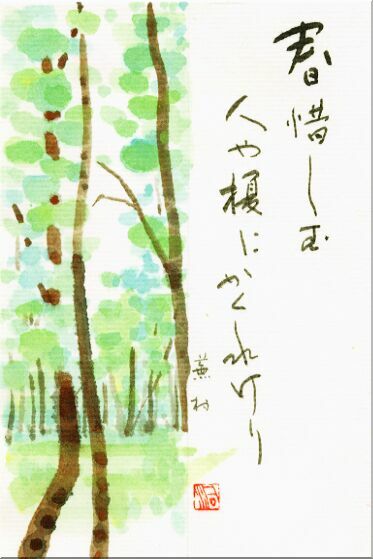 春惜しむ
人や榎に
かくれけり
蕪村